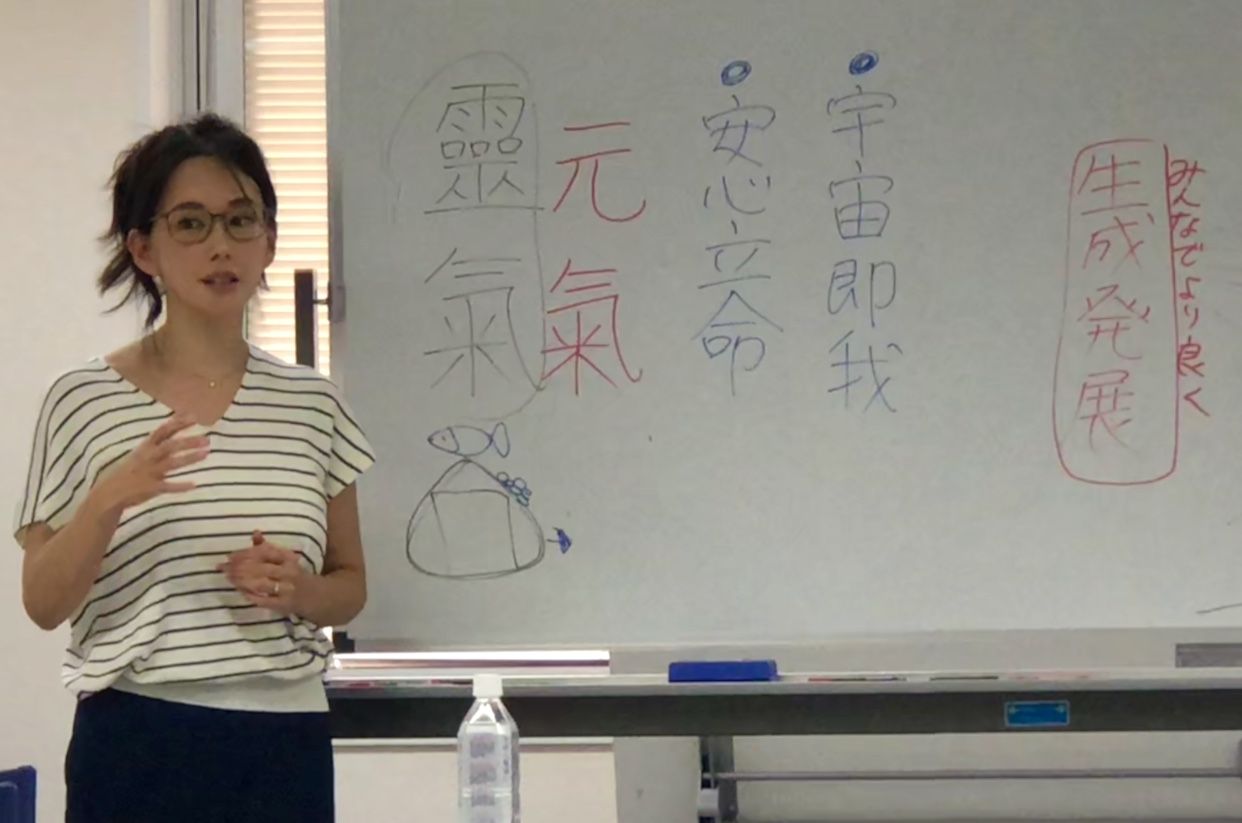 みんなでより良く
生成発展
宇宙即我
安心立命
元氣
靈氣